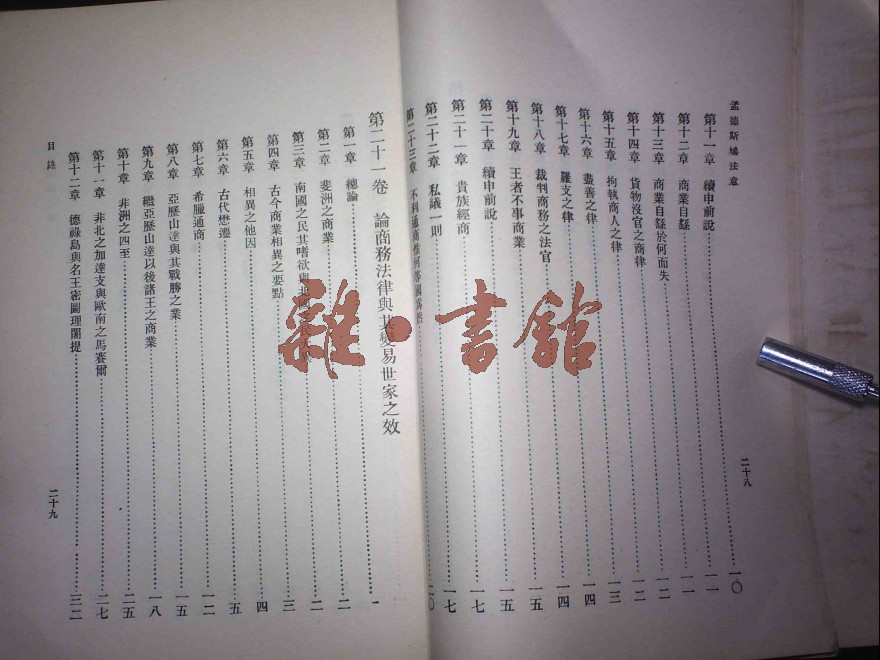 孟德斯鳩法意
第十一章 續申前說 一〇
第十二章 商業自繇 一一
第十三章 商業自繇於何而失 一一
第十四章 貨物沒官之商律 一二
第十五章 拘執商人之律 一三
第十六章 盡善之律 一四
第十七章 羅支之律 一四
第十八章 裁判商務之法官 一五
第十九章 王者不事商業 一五
第二十章 續申前說 一七
第二十一章 貴族經商 一七
第二十二章 私議一則 一七
第二十三章 不利通商 二〇
二十八
第二十一卷 論商務法律與其變易世家之效
第一章 總論 一
第二章 斐洲之商業 二
第三章 南國之民其嗜欲與北國 二
第四章 古今商業相異之要點 三
第五章 相異之他因 四
第六章 古代懋遷 五
第七章 希臘通商 一二
第八章 亞歷山達與其戰勝之業 一五
第九章 繼亞歷山達以後諸王之商業 一八
第十章 非洲之四至 二五
第十一章 非北之加達支與歐南之馬賽爾 二七
第十二章 德祿島與名王密圖理闍提 三二
目錄
二十九
雜·書館